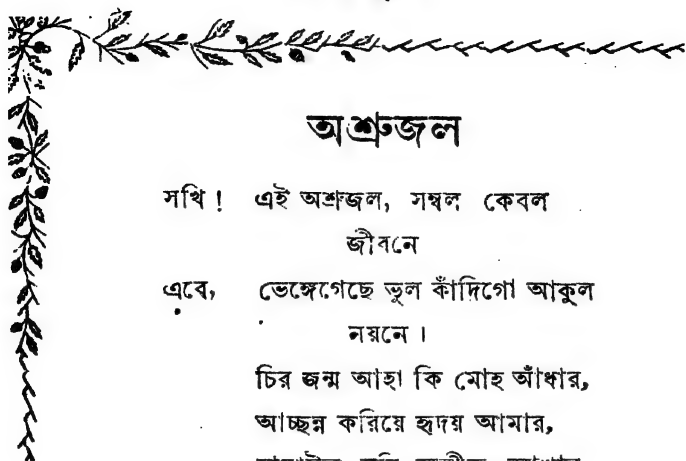 অশ্রুজল
সখি ! এই অশ্রুজল, সম্বল কেবল
জীবনে
এবে, ভেঙ্গেগেছে ভুল কাঁদিগো আকুল
নয়নে ।
চির জন্ম আহা কি মোহ আঁধার,
আচ্ছন্ন করিয়ে হৃদয় আমার,